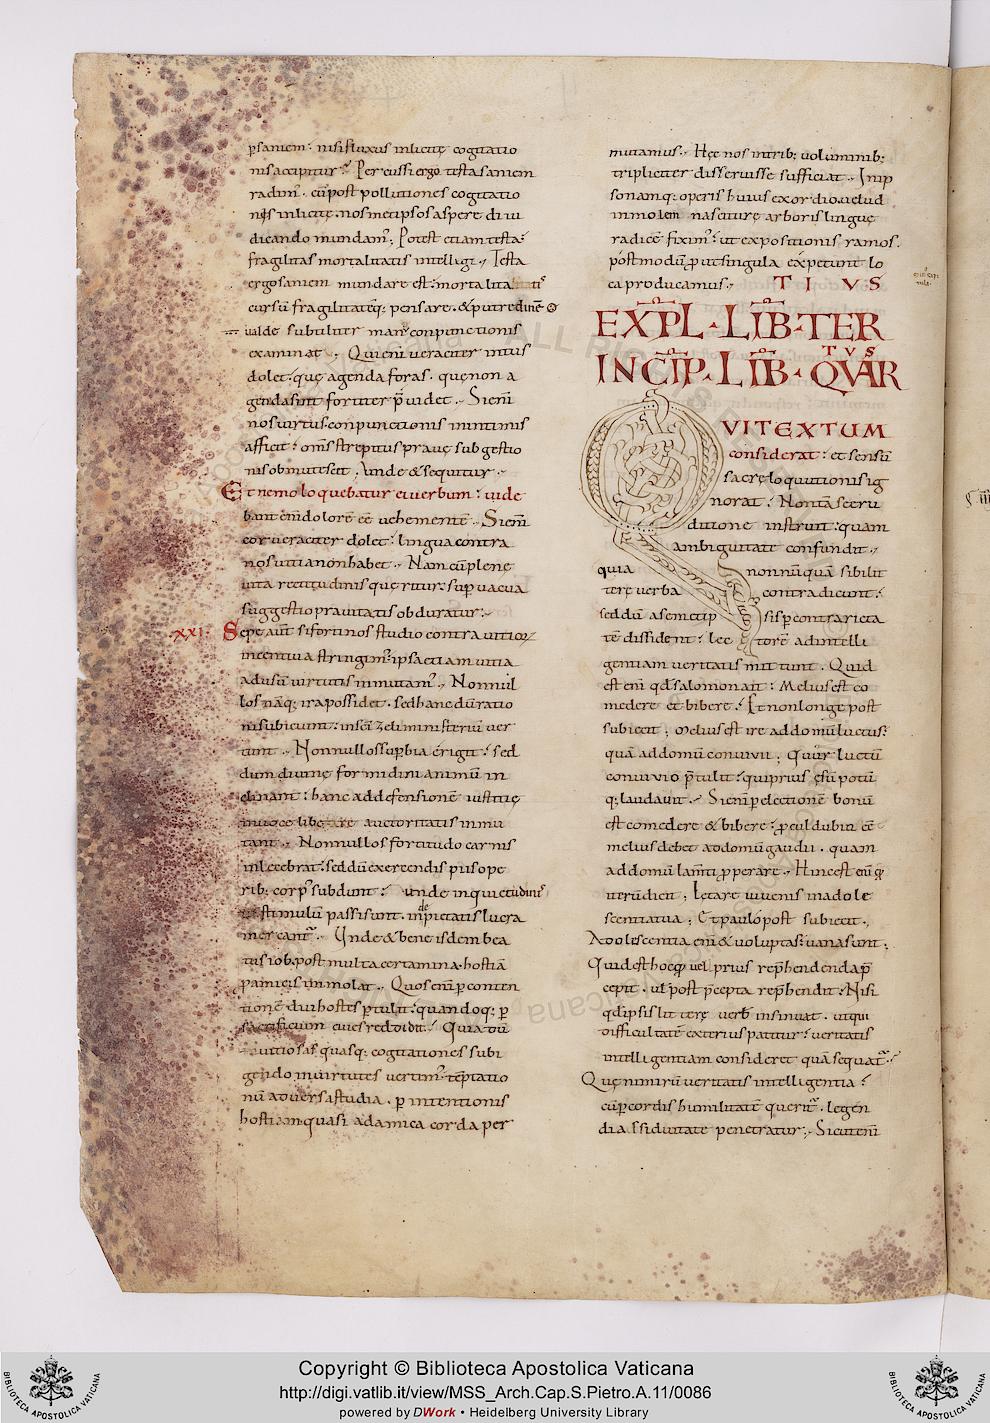 p saniem: nisi fluxus inlicitę cogitatio
nis accipitur? Percussi ergo testa saniem
radim; cū post pollutiones cogitatio
nis inlicitę. nosmetipsos aspere diiu
dicando mundam; Potest etiam testa
fragilitas mortalitatis intellegi; Testa
ergo saniem mundare est: mortalitatis
cursū fragilitatēq; pensare. & putredinē
examinat; Qui eni ueraciter intus
dolet: quę agenda foras. quę non a
genda sint fortiter p̄uidet; Sicni
nos uirtus conpunctionis in intimis
afficit: oms strepitus prauę suggestio
nis obmutescit; Unde & sequitur;
Et nemo loquebatur ei uerbum: uide
bant eni dolorē eē uehementē; Si eni
cor ueraciter dolet: lingua contra
nos uitia non habet; Nam cū plene
uita rectitudinis queritur: supuacua
suggestio prauitatis obduratur;
.XXI. Sepe aut si forti nos studio contra uitior
incentiua stringim: ipsa etiam uitia
ad usū uirtutis inmutam; Nonnul
los nāq; ira possidet. sed hanc dū ratio
ni subiciunt: in sci zeli ministeriū uer
tunt; Nonnullos supbia erigit: sed
dum diuinę formidini animū in
clinant: hanc ad defensionē iustitię
in uoce liberae auctoritatis inmu
tant; Nonnullos fortitudo carnis
inlecebrat: sed dū exercendis piis ope
rib; corp subdunt: unde inquietudinis
stimulū passi sunt. inde pietatis lucra
mercant; Unde & bene isdem bea
tus iob. post multa certamina hostiā
p amicis immolat; Quos eni p conten
tionē diu hostis ptulit: quandoq; p
sacrificium ciues reddidit; Quia dū
uitiosas quasq; cogitationes subi
gendo. in uirtutes uertim: tēptatio
nū aduersa studia. p intentionis
hostiam quasi ad amica corda per
mutamus; Hęc nos in trib; uoluminib;
tripliciter disseruisse sufficiat; In ip
so namq; operis huius exordio. uelud
in molem nasciturę arboris linguę
radicē fixim: ut expositionis ramos.
postmodū p ut singula expetunt lo
ca producamus; TIVS
EXPL · LIB · TER
INCIP · LIB · QVAR TVS
QUI TEXTUM
considerat: et sensū
sacrę locutionis ig
norat: Non tā se eru
ditione instruit: quam
ambiguitate confundit;
quia nonnūquā sibi lit
terę uerba contradicunt:
sed dū a semetip sis p contrarieta
tē dissident: lectorē ad intelli
gentiam ueritatis mittunt. Quid
est eni qđ salomon ait: Melius est co
medere et bibere: Et non longe post
subiecit; Melius est ire ad domū luctus:
quā ad domū conuiuii; Cur luctū
conuiuio p̄tulit: qui prius esū potū
q; laudauit; Si eni p electionē bonū
est comedere & bibere: pcul dubio eē
melius debet ad domū gaudii. quam
ad domū lamti pperare; Hinc est eni qđ
iterū dicit; Letare iuuenis in adole
scentia tua; Et paulo post subiecit;
Adolescentia eni & uoluptas: uana sunt;
Quid est hoc qđ uel prius rephendenda p̄
cepit. uel post p̄cepta rephendit: Nisi
qđ ipsis litterę uerb insinuat. ut qui
difficultatē exterius patitur: ueritatis
intelligentiam consideret quā sequat;
Quę nimirū ueritatis intelligentia:
cū p cordis humilitatē querit. legen
di assiduitate penetratur; Sicut eni
Copyright © Biblioteca Apostolica Vaticana
http://digi.vatlib.it/view/MSS_Arch.Cap.S.Pietro.A.11/0086
powered by DWork • Heidelberg University Library